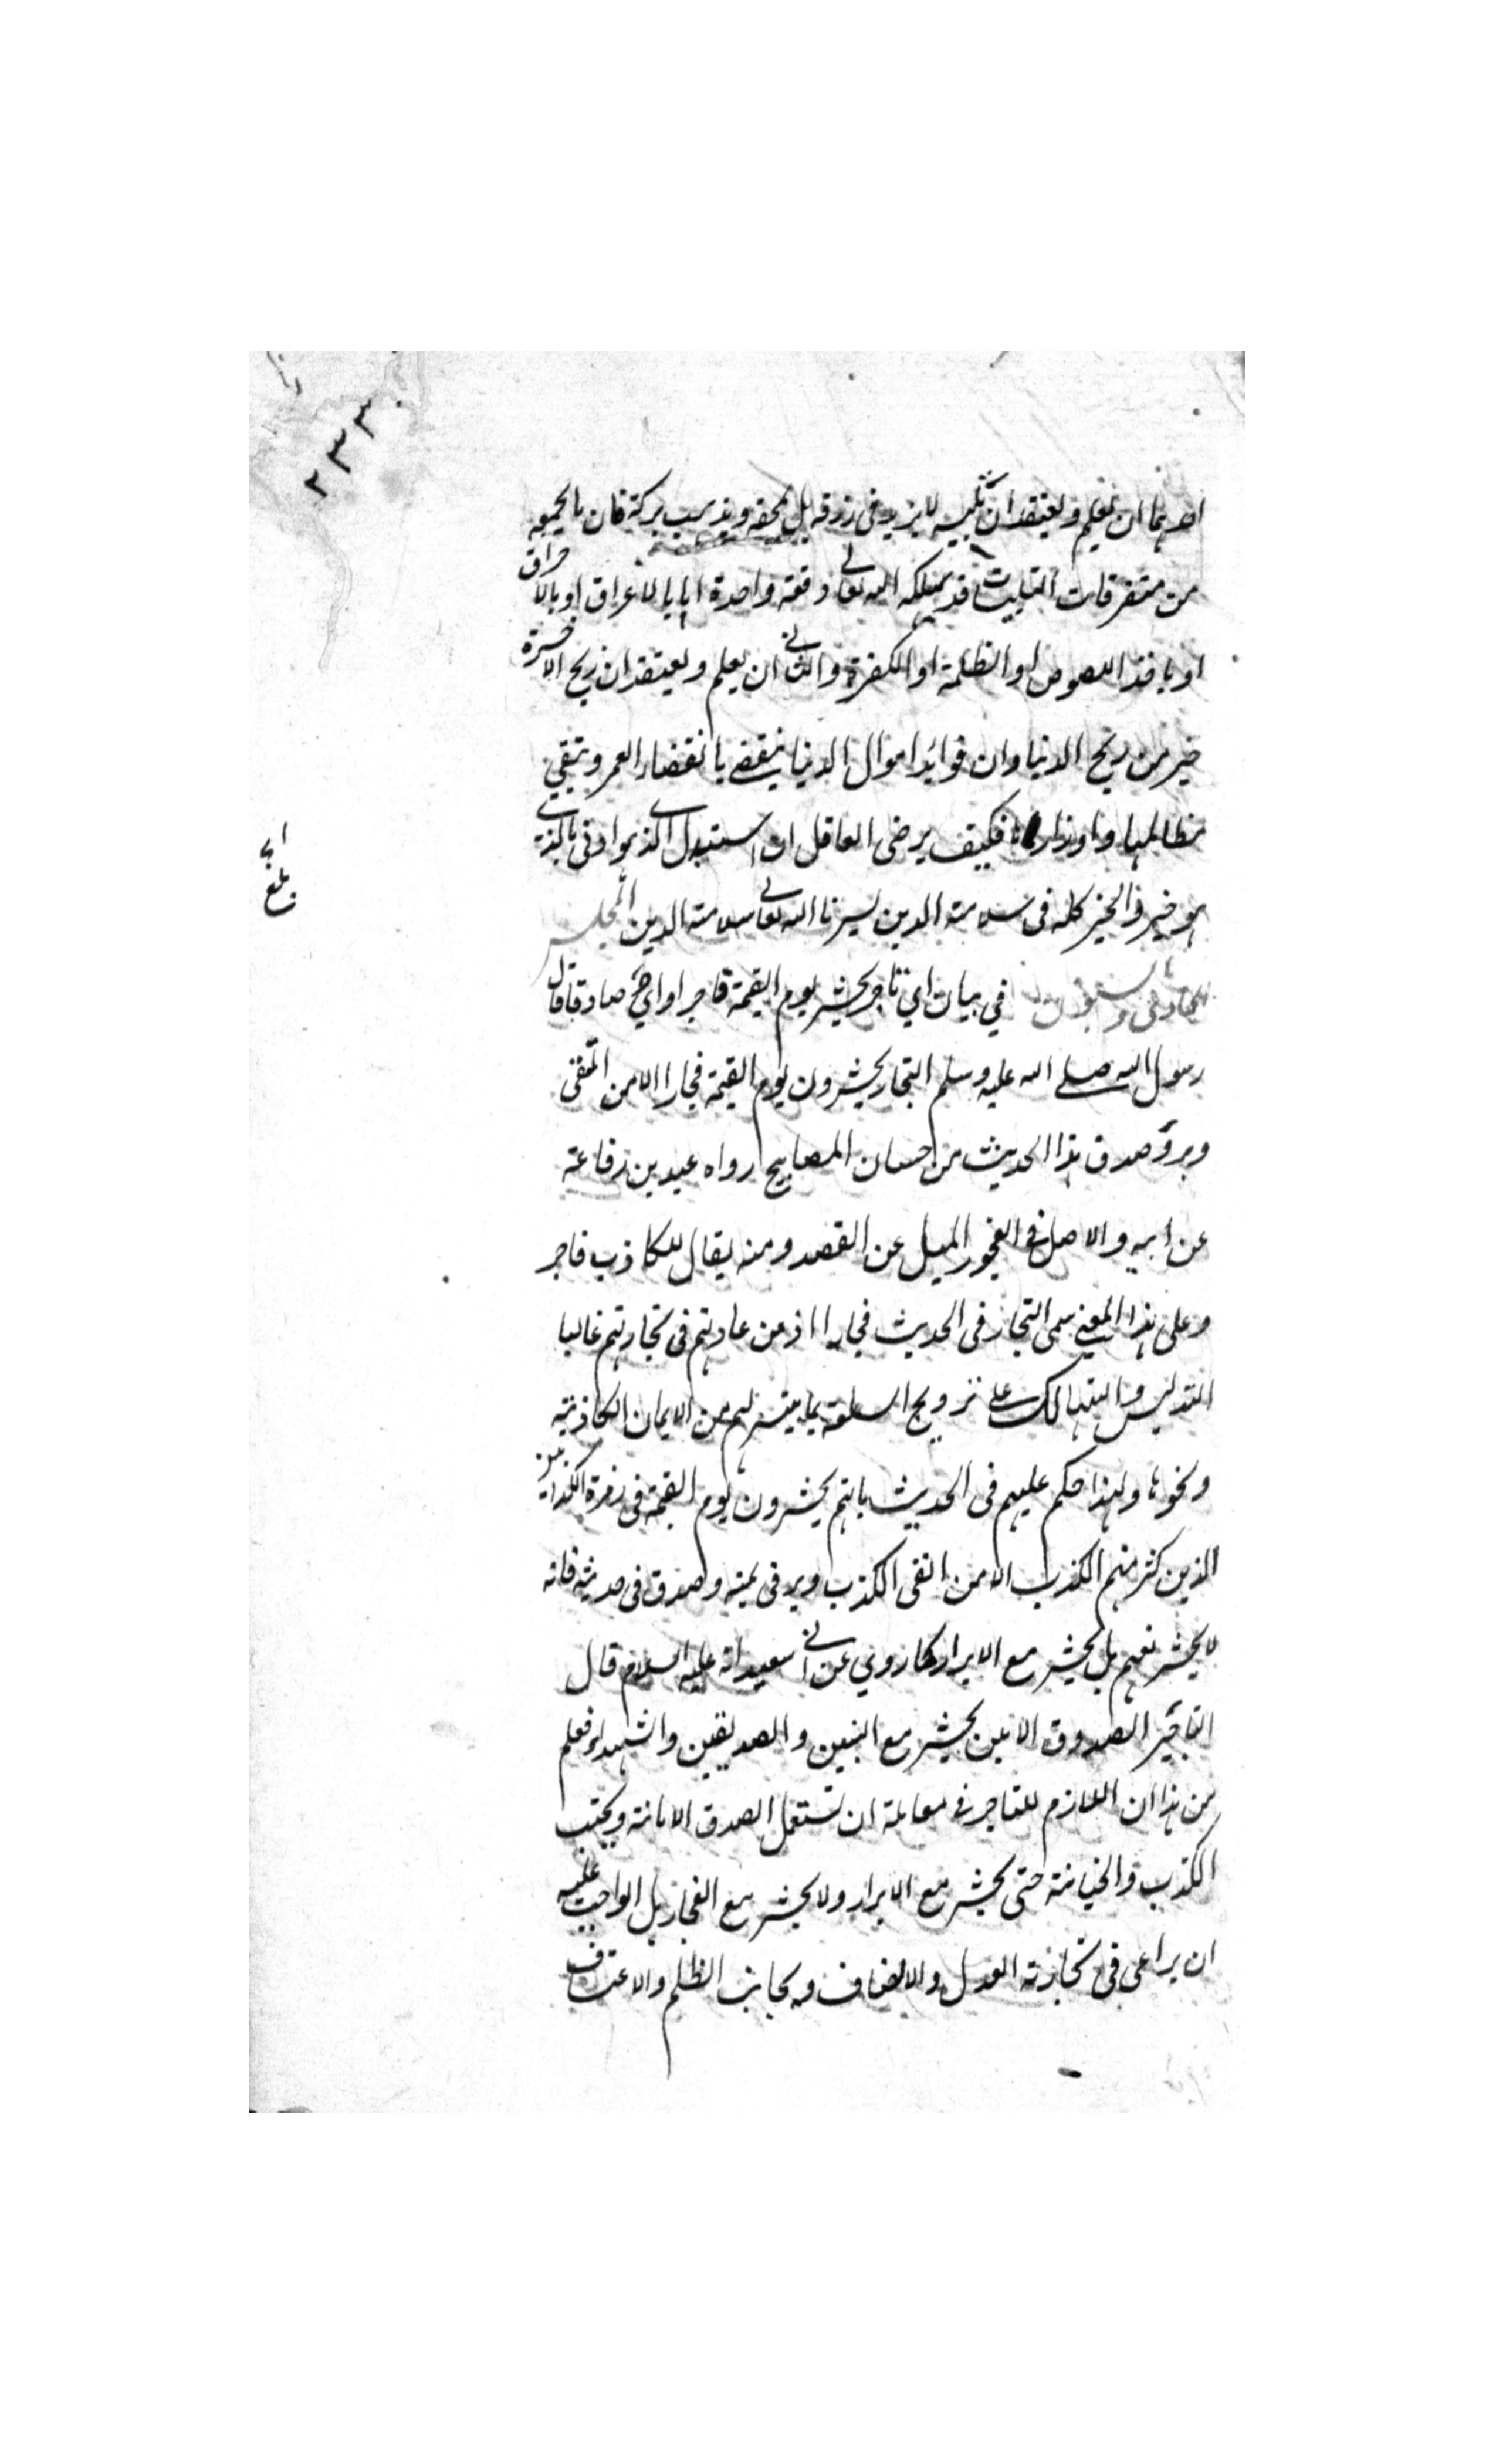 ٢٣٣
احدهما ان يعلم ويعتقد ان تلبيسه لا يزيد فى رزقه بل يمحقه ويذهب بركته فان ما يجمعه
من متفرقات التلبيسات قد يهلكه الله تعالى دفعة واحدة اما بالاغراق او بالاحراق
او باخذ اللصوص او الظلمة او الكفرة والثانى ان يعلم ويعتقد ان ربح الاخرة
خير من ربح الدنيا وان فوائد اموال الدنيا ينقضى بانقضاء العمر وتبقى
مظالمها واوزارها فكيف يرضى العاقل ان استبدل الذى هو ادنى بالذى
هو خير والخير كله فى سلامة الدين يسرنا الله تعالى سلامة الدين المجلس
فى بيان اى تاجر يحشر يوم القيمة فاجرا واى صادقا قال
رسول الله صلى الله عليه وسلم التجار يحشرون يوم القيمة فجارا الا من اتقى
وبر وصدق هذا الحديث من حسان المصابيح رواه عبيد بن رفاعة
عن ابيه والاصل فى الفجور الميل عن القصد ومنه يقال للكاذب فاجر
وعلى هذا المعنى سمى التجار فى الحديث فجارا اذ من عادتهم فى تجارتهم غالبا
التدليس والتهالك على ترويج السلعة بما يتيسر لهم من الايمان الكاذبة
ونحوها ولهذا حكم عليهم فى الحديث بانهم يحشرون يوم القيمة فى زمرة الكذابين
الذين كثر منهم الكذب الا من اتقى الكذب وبر فى يمينه وصدق فى حديثه فانه
لا يحشر معهم بل يحشر مع الابرار كما روى عن ابى سعيد انه عليه السلام قال
التاجر الصدوق الامين يحشر مع النبيين والصديقين والشهداء فعلم
من هذا ان اللازم للتاجر فى معاملة ان تستعمل الصدق الامانة ويجتنب
الكذب والخيانة حتى يحشر مع الابرار ولا يحشر مع الفجار بل الواجب عليه
ان يراعى فى تجارته العدل والانصاف ويجانب الظلم والاعتساف
بلغ